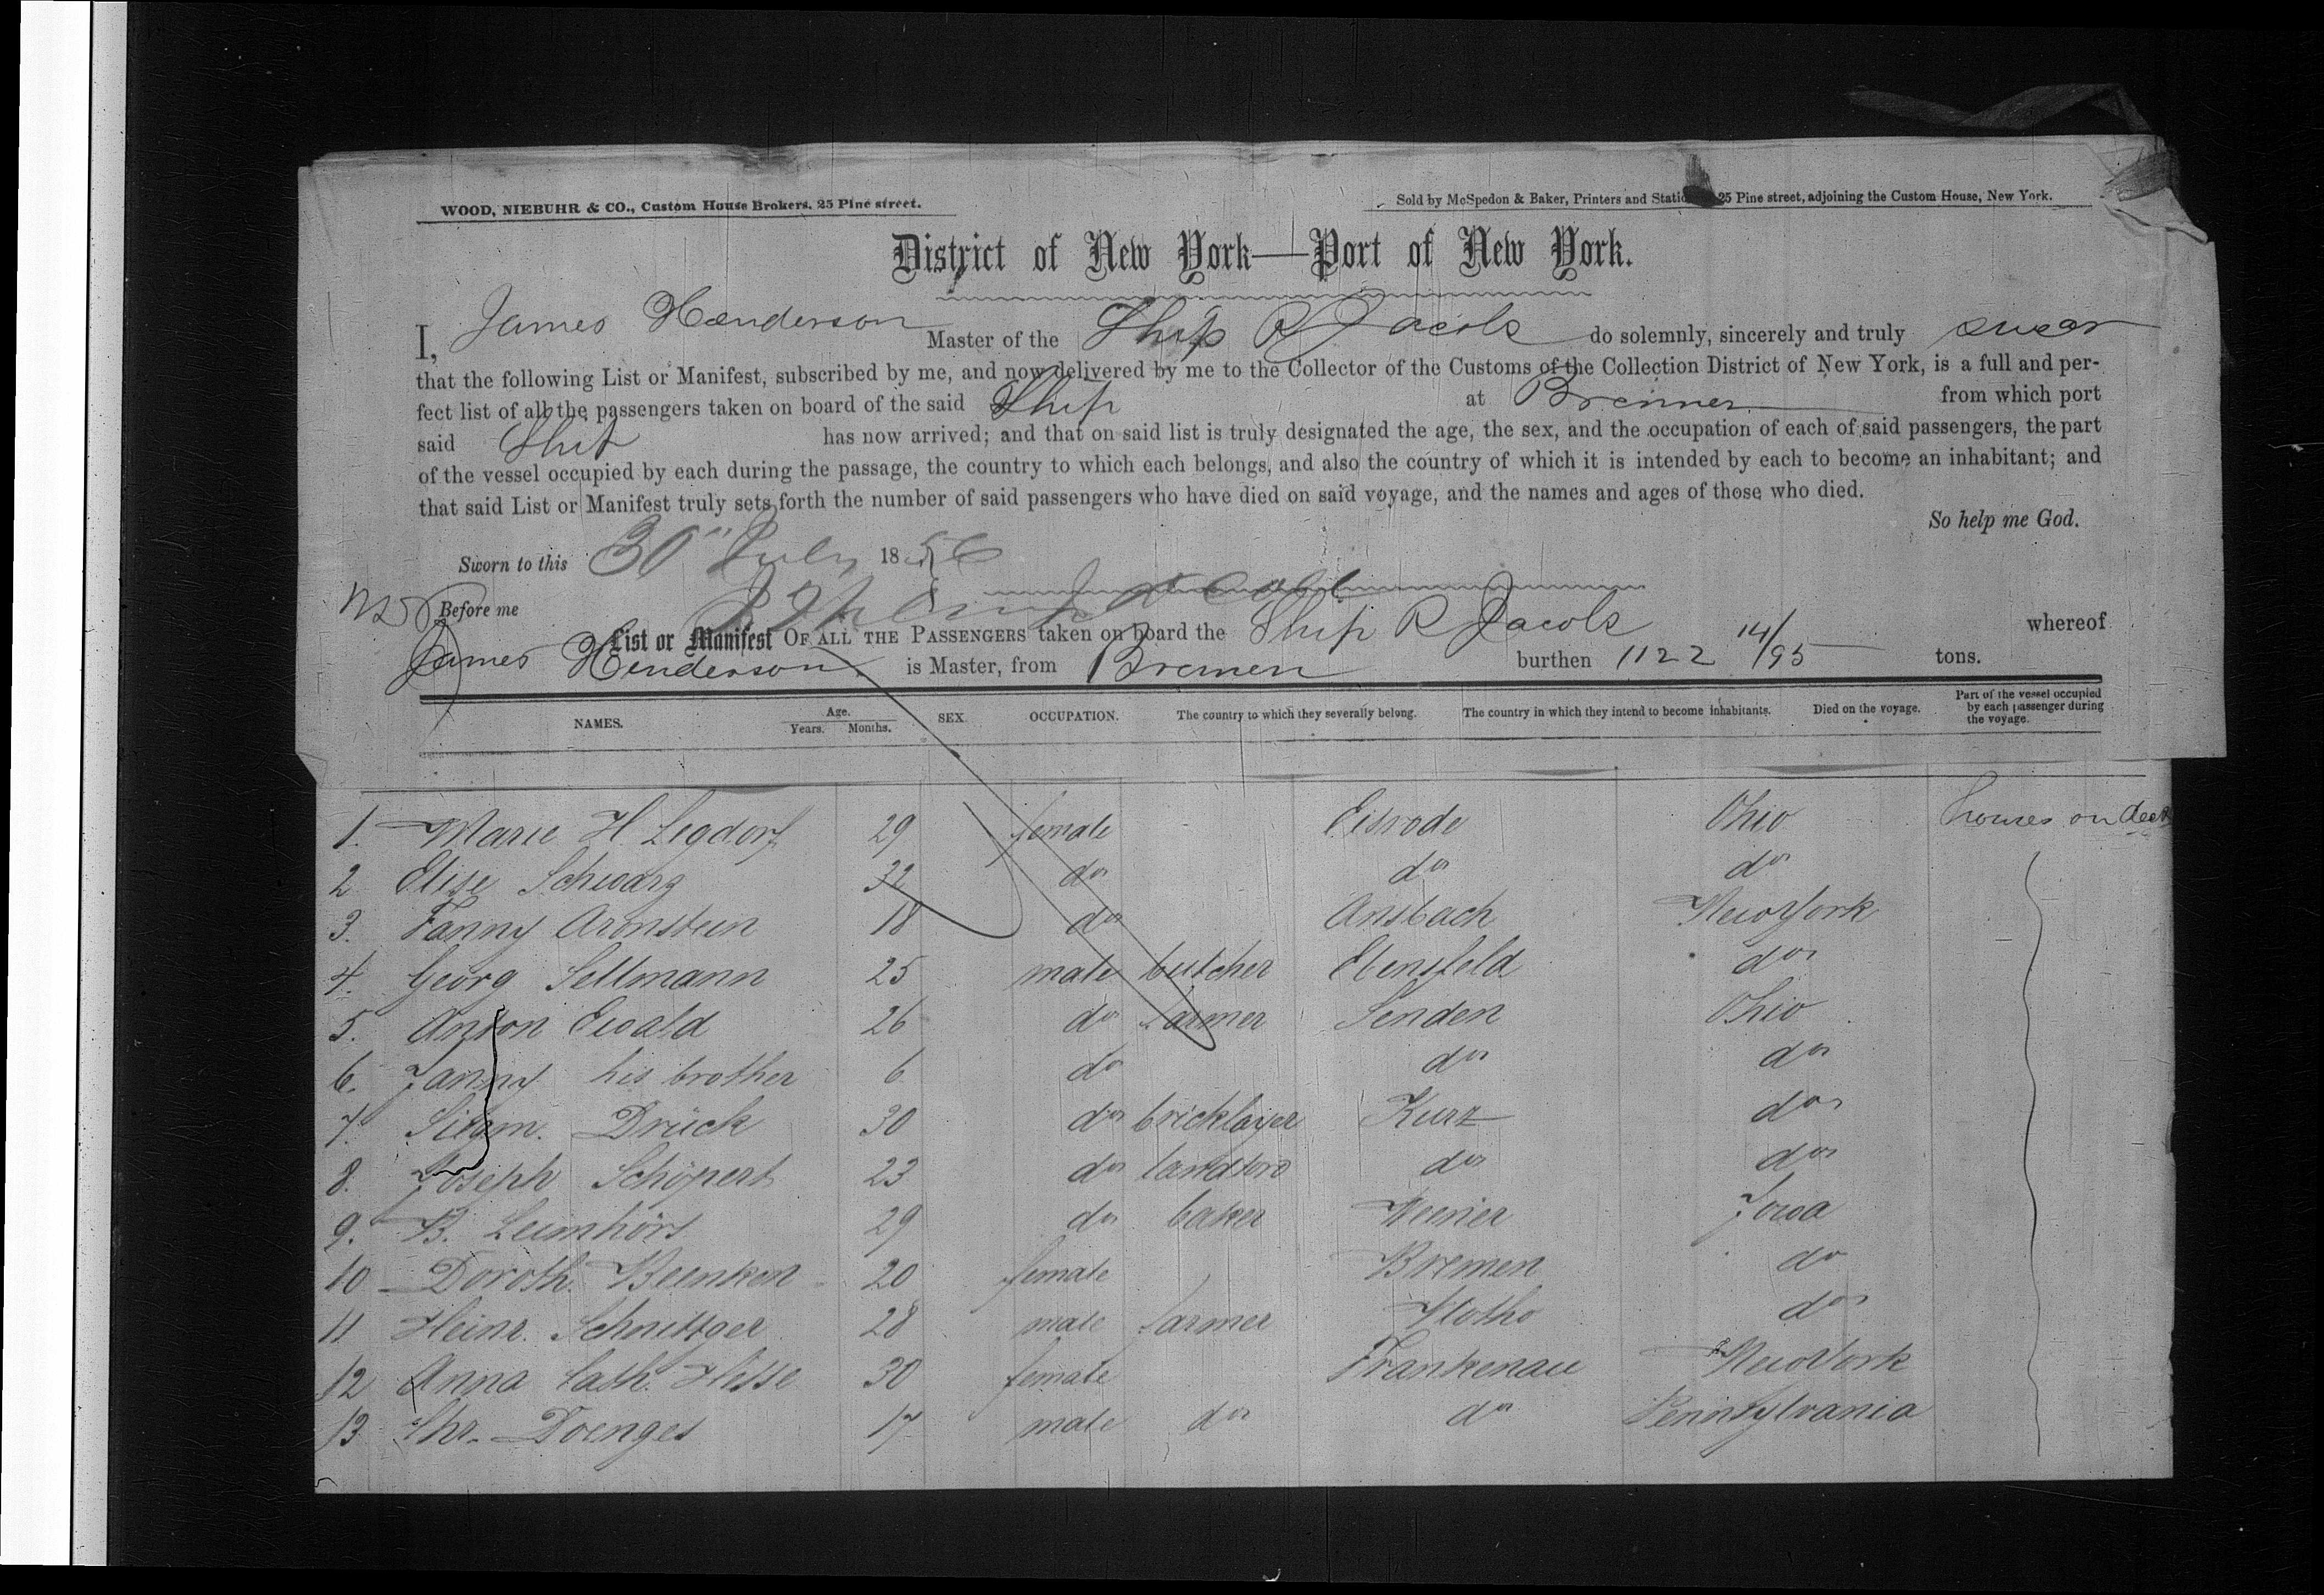 WOOD, NIEBUHR & CO., Custom House Brokers. 25 Pine street.
Sold by McSpedon & Baker, Printers and Static 25 Pine street, adjoining the Custom House, New York.
District of New York—Port of New York.
I, James Henderson Master of the Ship R Jacobs do solemnly, sincerely and truly swear
that the following List or Manifest, subscribed by me, and now delivered by me to the Collector of the Customs of the Collection District of New York, is a full and per-
fect list of all the passengers taken on board of the said Ship at Bremen from which port
said Ship has now arrived; and that on said list is truly designated the age, the sex, and the occupation of each of said passengers, the part
of the vessel occupied by each during the passage, the country to which each belongs, and also the country of which it is intended by each to become an inhabitant; and
that said List or Manifest truly sets forth the number of said passengers who have died on said voyage, and the names and ages of those who died.
So help me God.
Sworn to this 30th July 1856
Before me
List or Manifest OF ALL THE PASSENGERS taken on board the Ship R Jacobs whereof
James Henderson is Master, from Bremen burthen 1122 14/95 tons.
NAMES. Age. Years. Months. SEX. OCCUPATION. The country to which they severally belong. The country in which they intend to become inhabitants. Died on the voyage. Part of the vessel occupied by each passenger during the voyage.
1. Marie H. Legdorf 29 female Eisrode Ohio houses on deck
2 Elise Schwarz 32 do do do
3. Fanny Aronstein 18 do Ansbach New York
4. Georg Sellmann 25 male butcher Ebensfeld do
5. Anton Ewald 26 do farmer Senden Ohio
6. Fanny his brother 6 do do do
7. Drück 30 do bricklayer Kurz do
8. Joseph Schöpert 23 do landlord do do
9. B. Leimhörs 29 do baker Weener Iowa
10 Doroth. Beenken 20 female Bremen do
11 Heinr. Schnittger 28 male farmer Vlotho do
12 Anna Cath. Hesse 30 female Frankenau New York
13 Chr. Doenges 17 male do do Pennsylvania